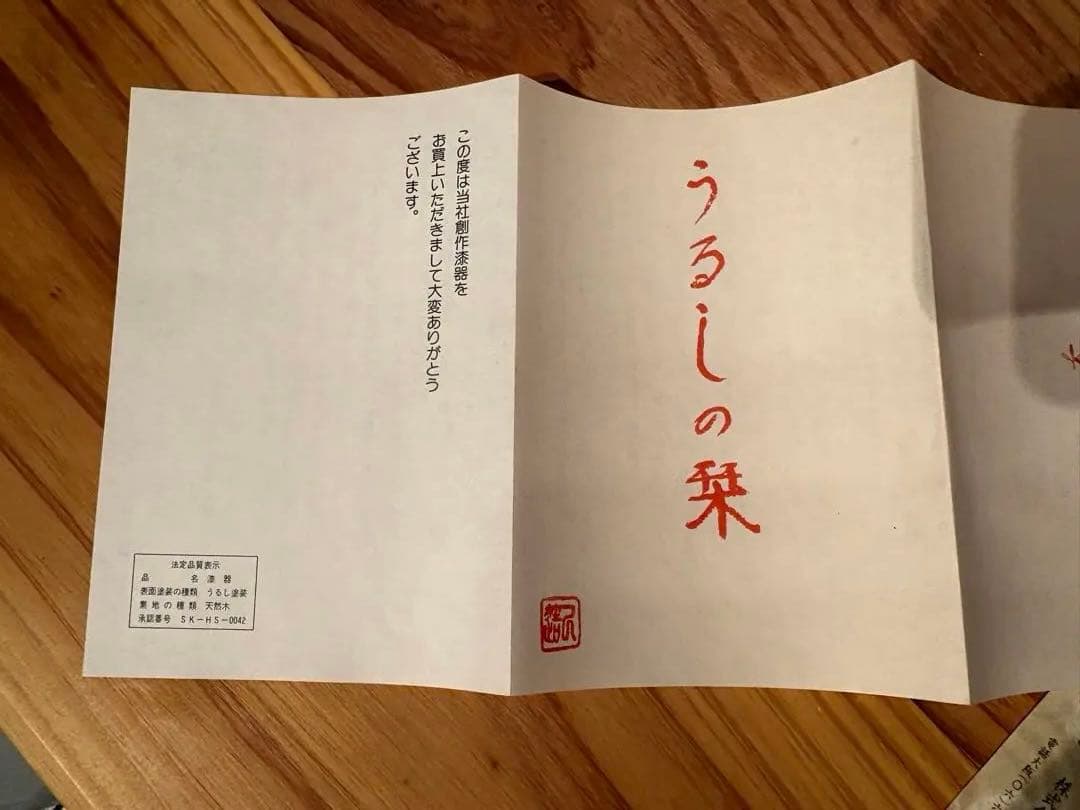 うるしの栞
この度は当社創作漆器を
お買上いただきまして大変ありがとう
ございます。
法定品質表示
品名 漆器
表面塗装の種類 うるし塗装
素地の種類 天然木
承認番号 SK-HS-0042